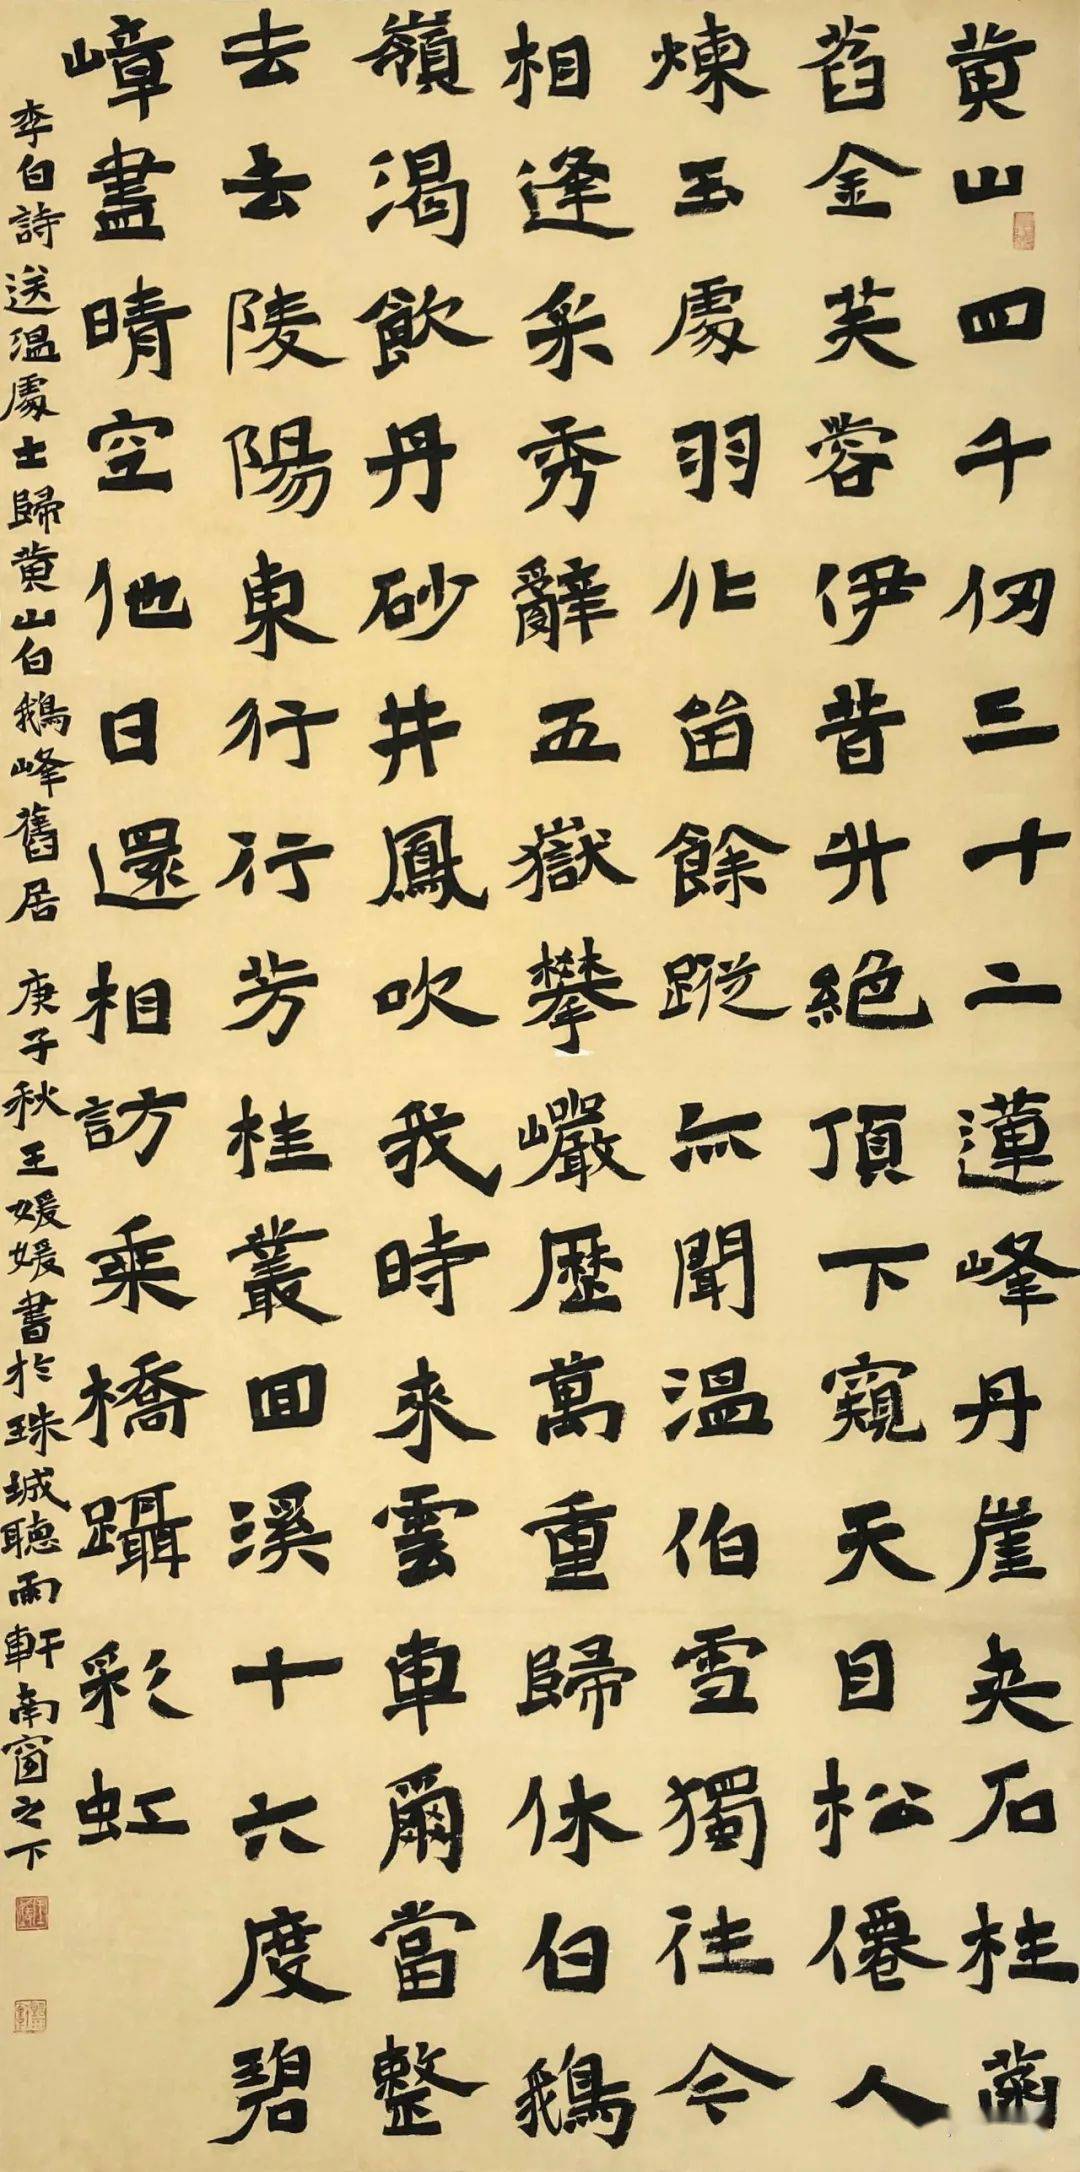 黄山四千仞三十二蓮峰丹崖夾石柱菡
萏金芙蓉伊昔升絕頂下窺天目松僊人
煉玉處羽化留餘蹤亦聞温伯雪獨往今
相逢采秀辭五嶽攀巖歷萬重歸休白鵝
嶺渴飲丹砂井鳳吹我時來雲車爾當整
去去陵陽東行行芳桂叢回溪十六度碧
嶂盡晴空他日還相訪乘橋躡彩虹
李白詩送温處士歸黄山白鵝峰舊居 庚子秋王媛媛書於珠城聽雨軒南窗之下